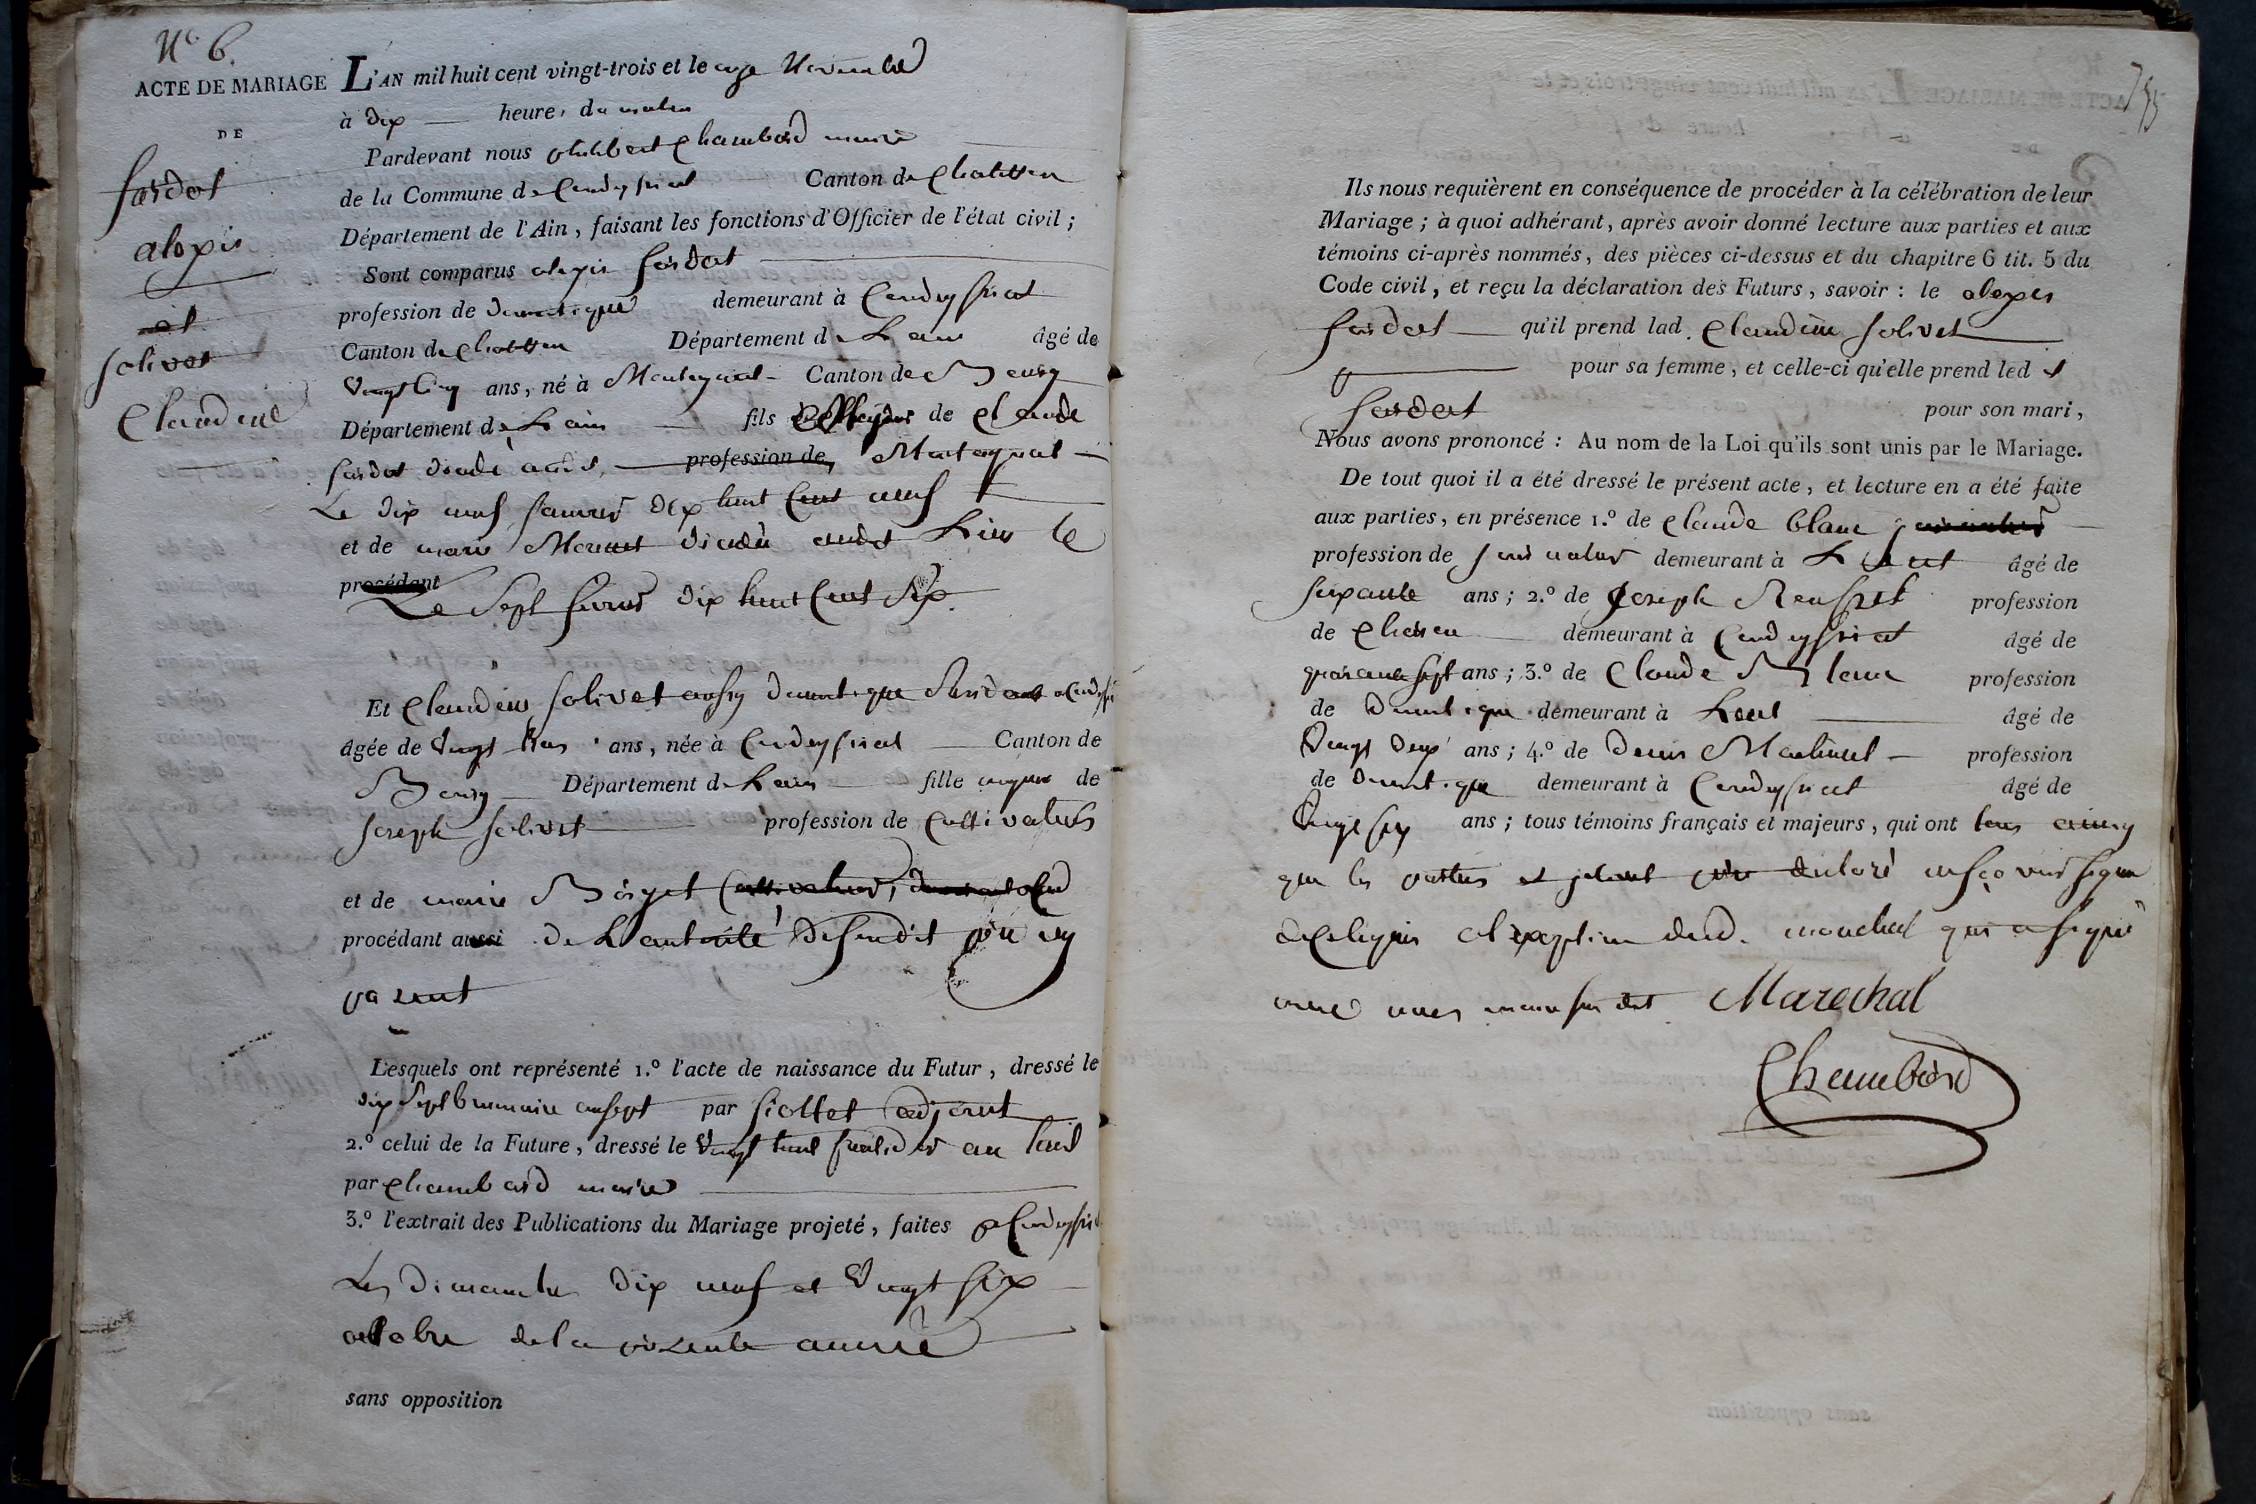 N° 6.
ACTE DE MARIAGE
DE
fardet
alexis
et
solivet
Claudine
L'AN mil huit cent vingt-trois et le onze Novembre
à dix heure, du matin
Pardevant nous philibert Chambard maire
de la Commune de Condeyssiat Canton de Chatillon
Département de l'Ain, faisant les fonctions d'Officier de l'état civil;
Sont comparus alexis fardet
profession de domestique demeurant à Condeyssiat
Canton de Chatillon Département de L'ain âgé de
vingt cinq ans, né à Montagnat Canton de Bourg
Département de L'ain fils de Claude
fardet décédé profession de Montagnat
Le dix neuf janvier dix huit cent neuf
et de marie décédée lieu le
procédant
Le sept dix huit cent dix
Et Claudine solivet aussy domestique
âgée de vingt trois ans, née à Condeyssiat Canton de
Bourg Département de L'ain fille majeure de
joseph solivet profession de Cultivateur
et de marie Cultivateur,
procédant aussi de L'autorité
Lesquels ont représenté 1.° l'acte de naissance du Futur, dressé le
dix sept brumaire an sept par adjoint
2.° celui de la Future, dressé le vingt huit an huit
par Chambard maire
3.° l'extrait des Publications du Mariage projeté, faites a Condeyssiat
Les dimanches dix neuf et vingt six
octobre de la présente année
sans opposition
755
Ils nous requièrent en conséquence de procéder à la célébration de leur
Mariage; à quoi adhérant, après avoir donné lecture aux parties et aux
témoins ci-après nommés, des pièces ci-dessus et du chapitre 6 tit. 5 du
Code civil, et reçu la déclaration des Futurs, savoir: le alexis
fardet qu'il prend lad. Claudine solivet
pour sa femme, et celle-ci qu'elle prend led
fardet pour son mari,
Nous avons prononcé: Au nom de la Loi qu'ils sont unis par le Mariage.
De tout quoi il a été dressé le présent acte, et lecture en a été faite
aux parties, en présence 1.° de Claude blanc
profession de journalier demeurant à Lent âgé de
soixante ans; 2.° de joseph profession
de demeurant à Condeyssiat âgé de
quarante sept ans; 3.° de Claude Blanc profession
de domestique demeurant à Lent âgé de
vingt deux ans; 4.° de denis profession
de domestique demeurant à Condeyssiat âgé de
ans; tous témoins français et majeurs, qui ont
que les parties et déclaré ne sçavoir signer
a l'exception dud. marechal qui a signé
avec nous maire susdit Marechal
Chambard